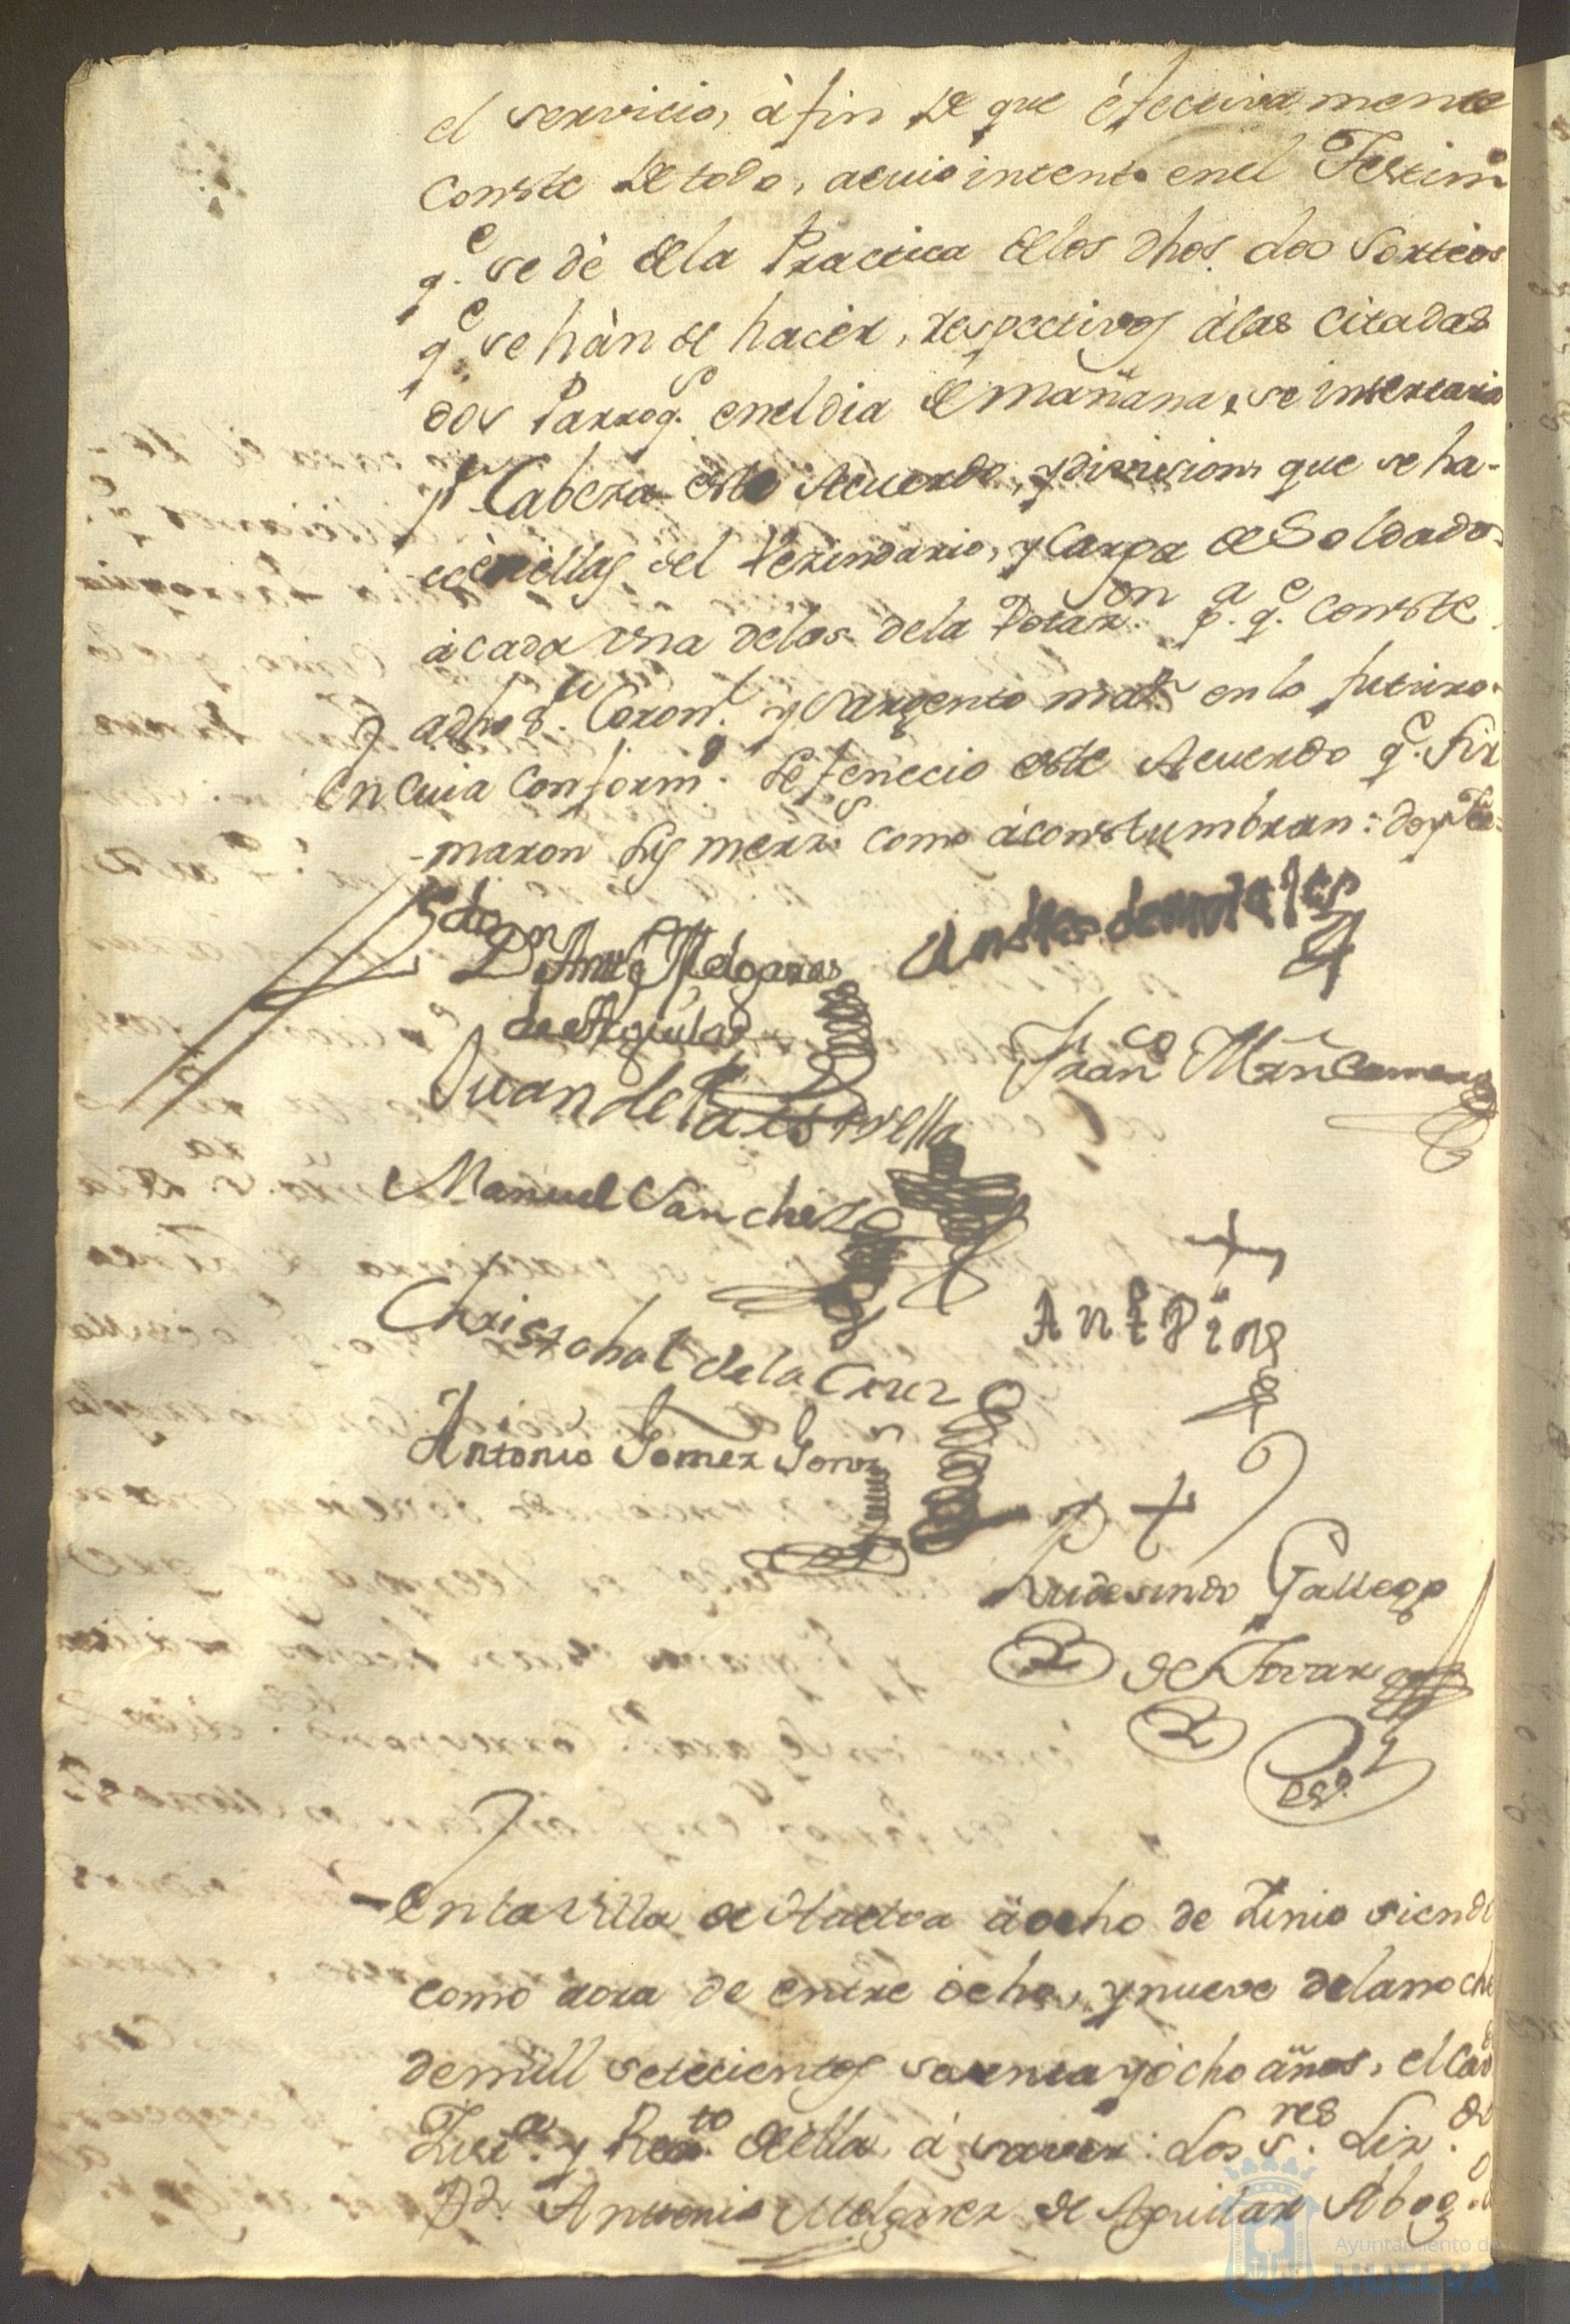 el servicio, à fin de que éfectiva mente
conste de todo, acuio intento enel Testimº
q.e se dè dela Practica delos dhos. dos Sortèos
q.e se hàn de hacèr, respectivos àlas citadas
dos Parroq.s enel dia de mañana, se insertarà
p.r Cabeza este Acuerdo, y division que se ha-
del Vezindario, y Carga de Soldados
àcada una delos dela Dotaz.on p.a q.e conste
Coron.l y Sargento maior en lo futuro.
En cuia conform.d se fenecio este Acuerdo q.e fir
-maron sus merz.s como àcostumbran: doy fee.
Lizdo Dn Antto Melgarez
de Aguilar
Andres de morales
Juan de la estrella
Franco Mrn Camero
Manuel Sanchez
Christobal de la Cruz
Ant Pinº
Antonio Gomez Gonz
Rudesindo Gallego
de Tovar
esº.
En la villa de Huelva à ocho de Junio siendo
como aora de entre ocho, y nueve dela noche
de mill setecientos sesenta y òcho años, el Cavdº
Justª. y Regto. de ella, á saver: Los S.res Lizdo.
Dn. Antonio Melgarez de Aguilar Abogdo.
Ayuntamiento de
HUELVA